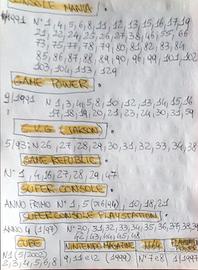 CONSOLE MANIA
N° 1, 4, 5, 6, 8, 11, 12, 13, 15, 16, 17, 19
21, 22, 24, 25, 26, 27, 38, 46, 55, 66
73, 75, 77, 78, 79, 80, 81, 82, 83, 84
85, 86, 87, 88, 89, 90, 96, 99, 101, 102
103, 104, 113, 129
GAME POWER
9/1991 N 1, 3, 4, 5, 8, 10, 12, 13, 14, 15, 16
17, 18, 19, 20, 21, 23, 24, 30, 31, 59
5/93: N 26, 27, 28, 29, 30, 31, 32, 33, 34, 38
GAME REPUBLIC
N° 1, 4, 16, 27, 28, 29, 47
SUPER CONSOLE
ANNO PRIMO N° 1, 5, 10, 18, 21
SUPER CONSOLE PLAYSTATION
ANNO 4 (1997) N° 30, 31, 32, 33, 34, 35, 36, 37, 38, 39
42, 43, 44, 45, 48
CUBE
NINTENDO MAGAZINE
N64
N1 (5/2002)
2, 3, 4, 5, 8
9, 11 e 12 (1999)
N° 7 e 8